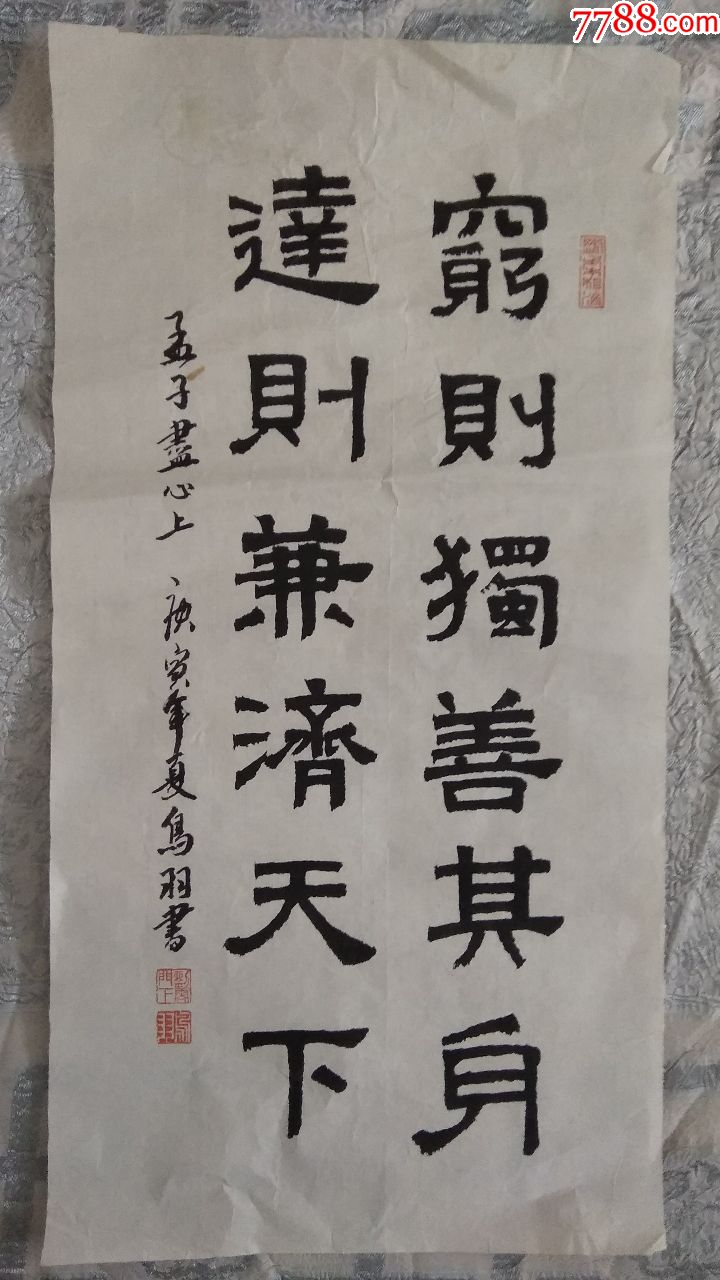 7788.com
窮則獨善其身
達則兼濟天下
孟子盡心上 庚寅年夏鳥羽書